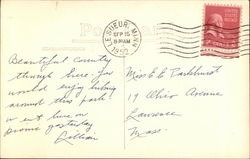 Post Card
LE SUEUR, MINN.
SEP 15
8-PM
Beautiful country
through here. You
would enjoy fishing
around this part.
Lillian
Miss E E Parkhurst
19 Ohio Avenue
Lawrence
Mass.